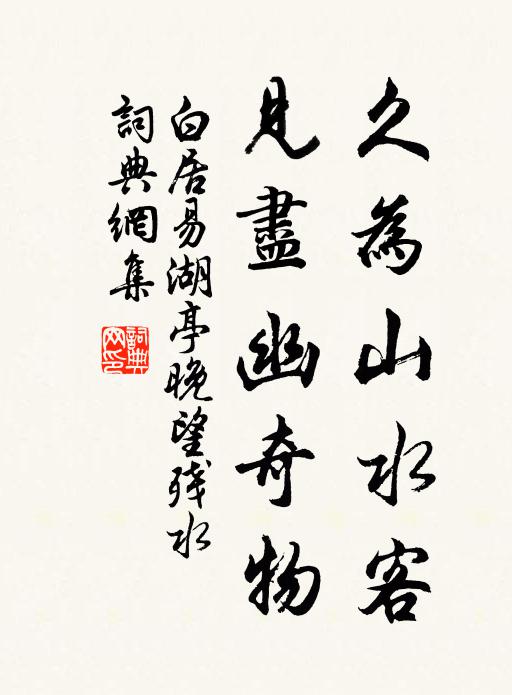 久為山水客
見盡幽奇物
白居易湖亭晚望残水
詞典網集
詞典網印